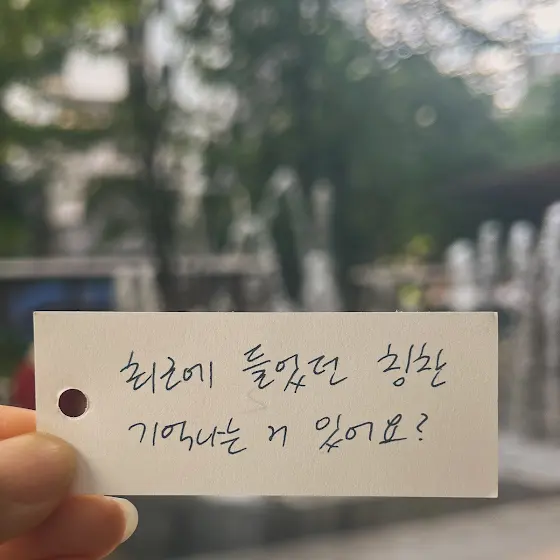 최근에 들었던 칭찬
기억나는 거 있어요?